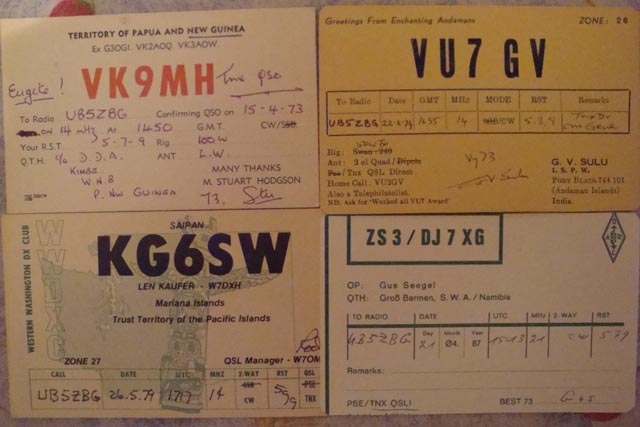 TERRITORY OF PAPUA AND NEW GUINEA
Ex G3OGI. VK2AOQ. VK3AOW.
VK9MH Tnx QSO
To Radio UB5ZBG Confirming QSO on 15-4-73
on 14 mHz At 1450 G.M.T. CW/SSB
Your R.S.T. 5-7-9 Rig 100W
Q.T.H. c/o D.D.A. ANT L.W.
KIMBE
W.N.B
P. NEW GUINEA
MANY THANKS
M. STUART HODGSON
73, Stu
Greetings From Enchanting Andamans ZONE: 26
VU7GV
To Radio Date GMT MHz MODE RST Remarks
UB5ZBG 14 SSB/CW 5.8.9 Tnx Dr
Rig: Swan-240
Ant: 2 el Quad / Dipole
Pse / Tnx QSL Direct
Home Call: VU2GV
Also a Telephilatelist.
NB: Ask for 'Worked all VU7 Award'
Vy 73
G. V. SULU
I. S. P. W.
PORT BLAIR-744 101
(Andaman Islands)
India.
WESTERN WASHINGTON DX CLUB
WWDXC
SAIPAN
KG6SW
LEN KAUFER - W7DXH
Mariana Islands
Trust Territory of the Pacific Islands
ZONE 27 QSL Manager - W7OM
CALL DATE UTC MHZ 2-WAY RST QSL
UB5ZBG 26.5.79 1717 14 SSB CW 599 PSE TNX
ZS3/DJ7XG
OP: Gus Seegel
QTH: Groß Barmen, S.W.A. / Namibia
TO RADIO DATE UTC MHz 2-WAY RST
Day Month Year
UB5ZBG 21 04. 87 1513 21 CW 579
Remarks:
PSE/TNX QSL! BEST 73